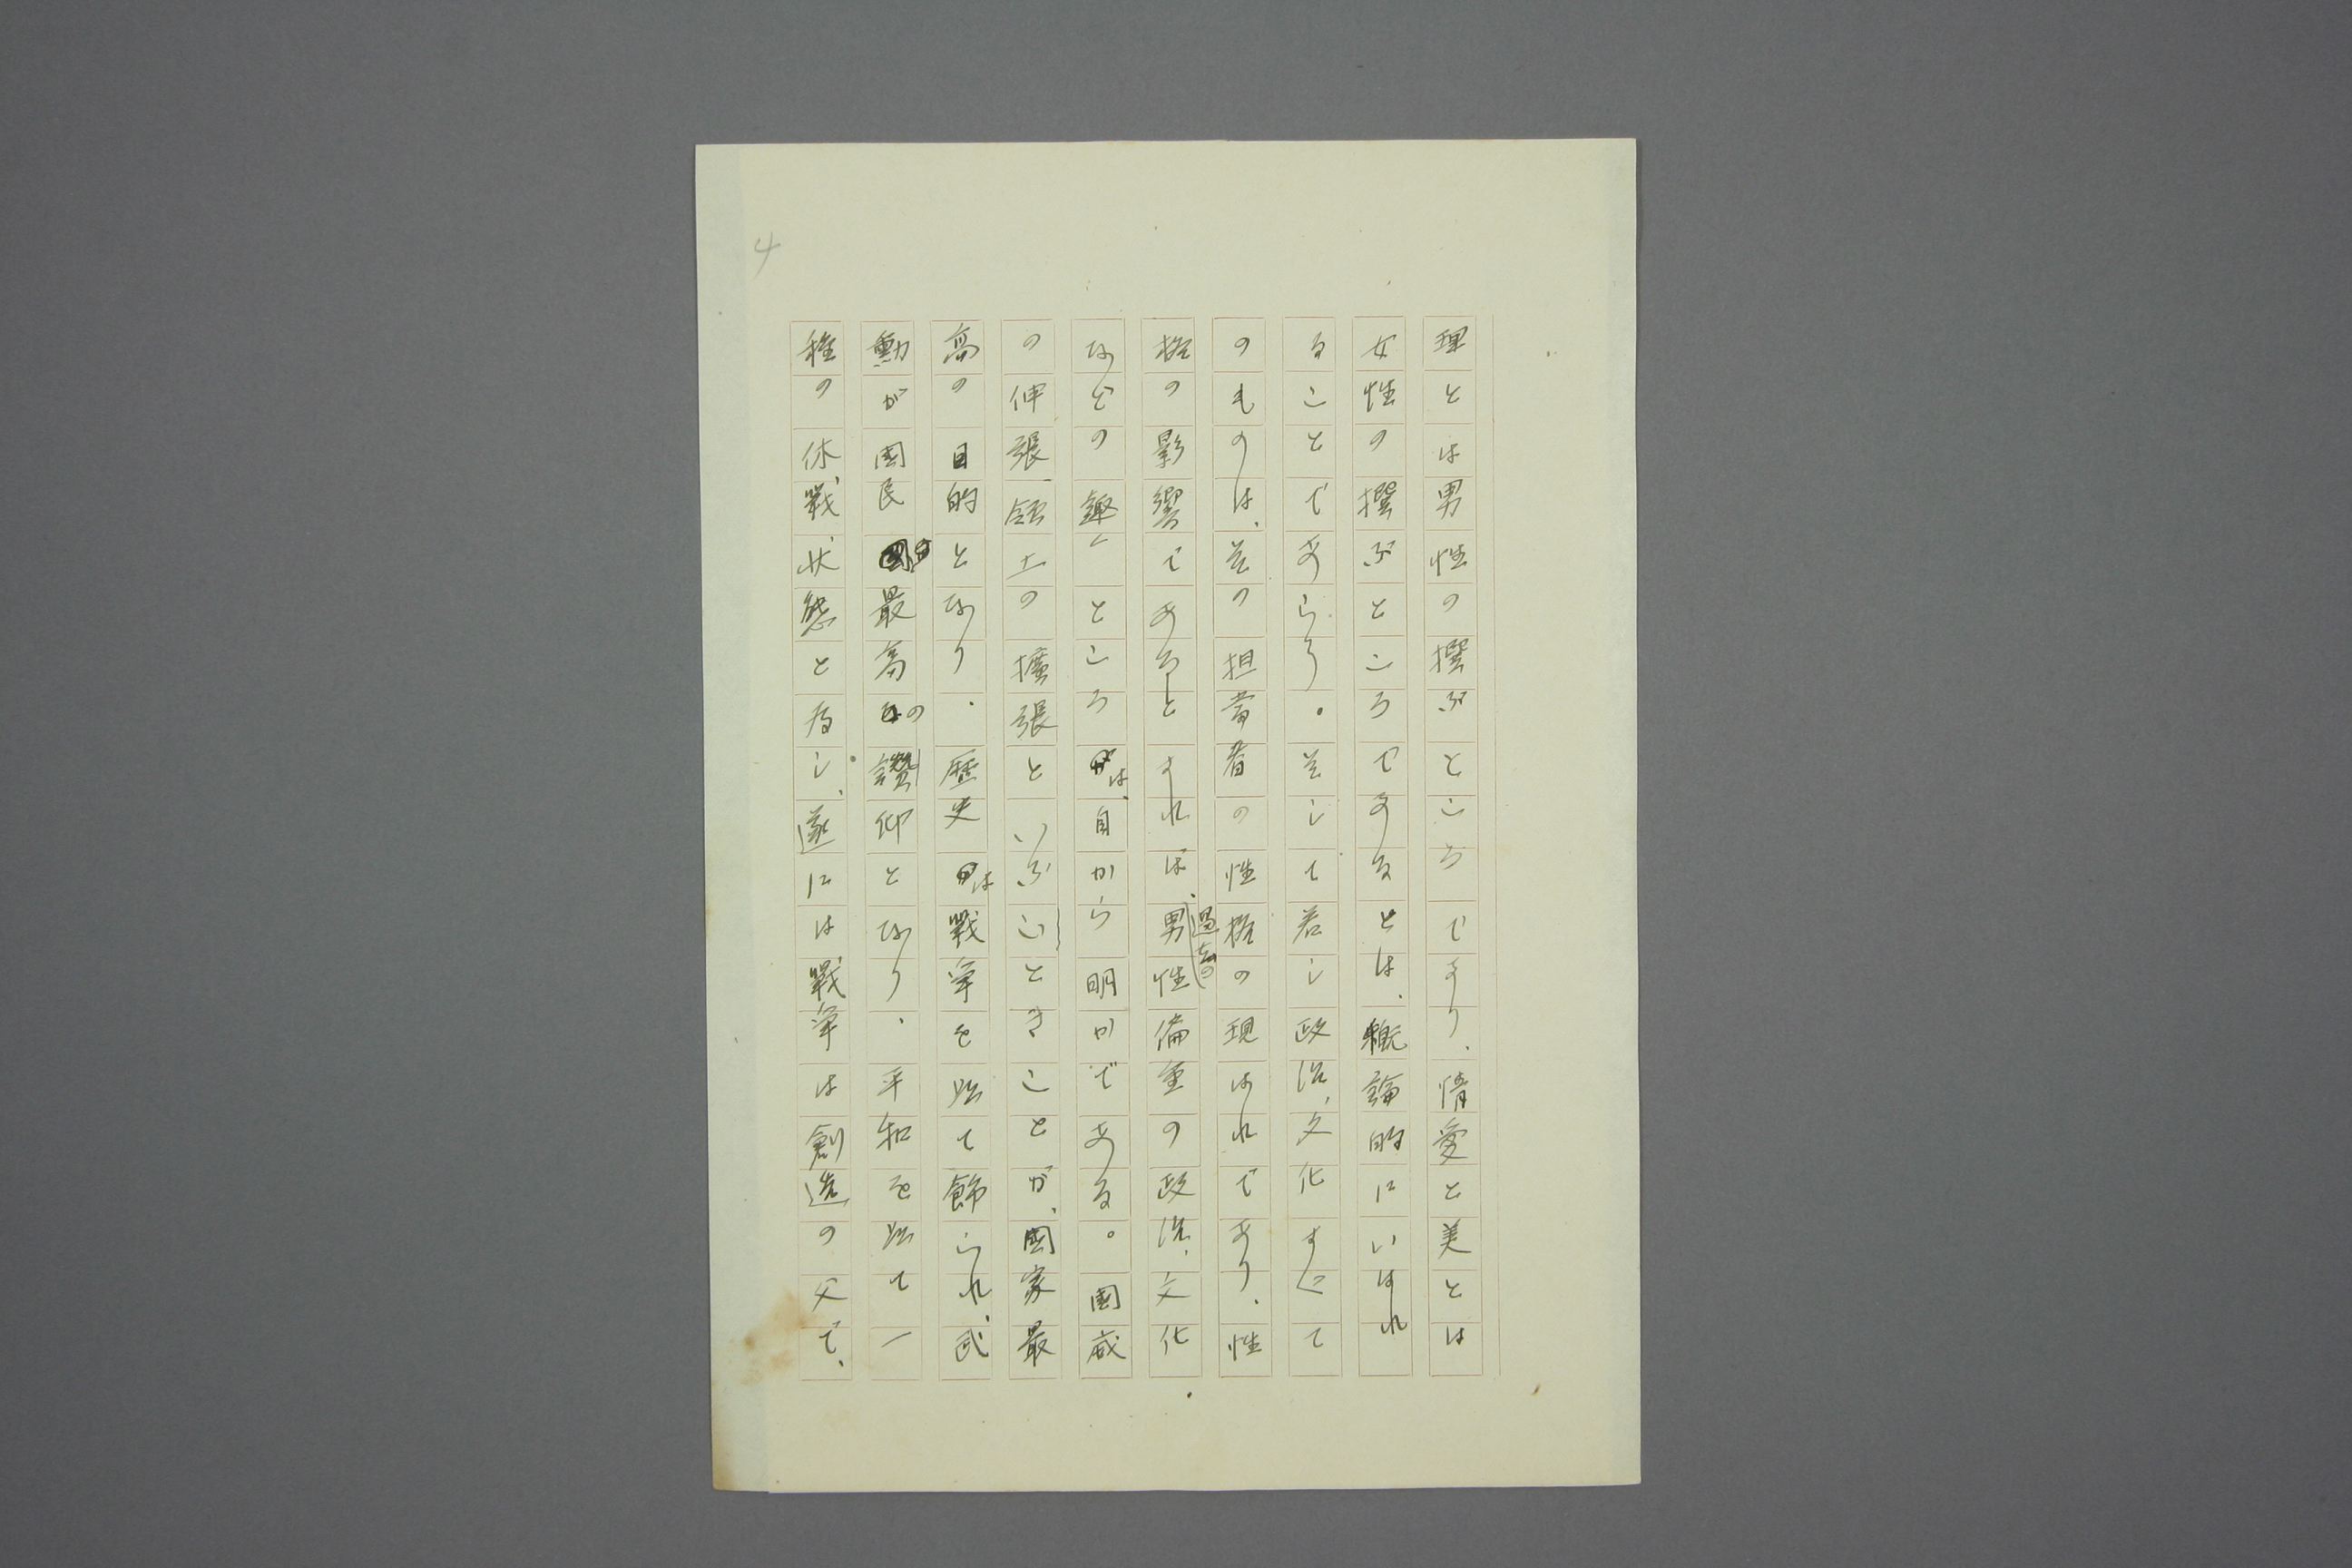 4
理とは男性の撰ぶところであり、情愛と美とは
女性の撰ぶところであるとは、概論的にいはれ
ることであらう。そして若し政治、文化すべて
のものは、その担当者の性格の現はれであり、性
格の影響であるとすれば、過去の男性偏重の政治、文化
などの趣くところは、自から明かである。国威
の伸張、領土の擴張といふことがときことが、國家最
高の目的となり、歴史は戰争を以て飾られ、武
勳が国民最高の讃仰となり、平和を以て一
種の休戰状態と為し、遂には戰争は創造の父で、